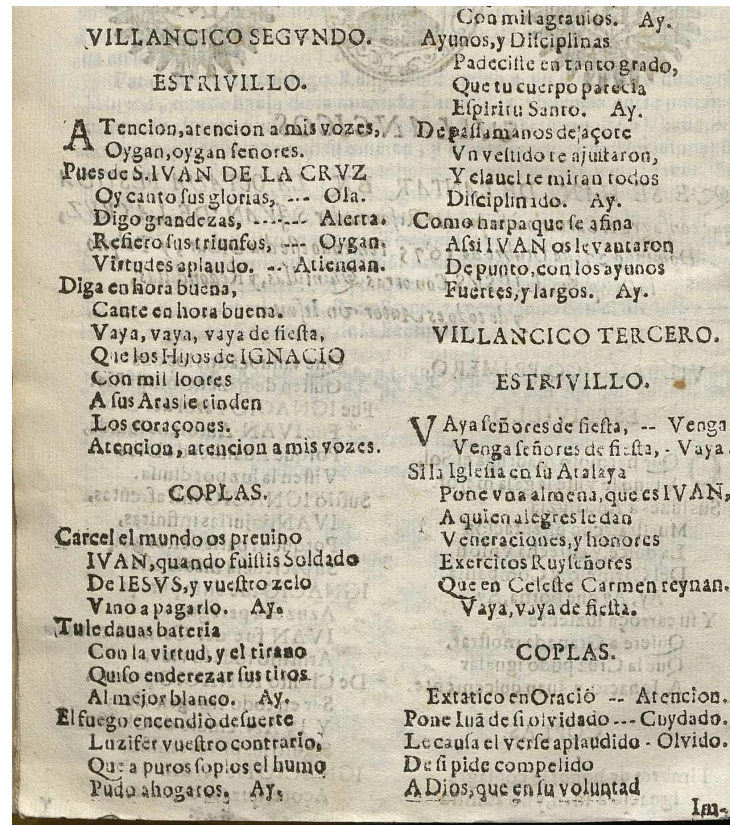 VILLANCICO SEGVNDO.
ESTRIVILLO.
ATencion,atencion a mis vozes,
Oygan,oygan ſeñores.
Pues de S.IVAN DE LA CRVZ
Oy canto ſus glorias, --- Ola.
Digo grandezas, ------ Alerta.
Refiero ſus triunfos, --- Oygan.
Virtudes aplaudo. -- Atiendan.
Diga en hora buena,
Cante en hora buena.
Vaya, vaya, vaya de fieſta,
Que los Hijos de IGNACIO
Con mil loores
A ſus Aras le rinden
Los coraçones.
Atencion, atencion a mis vozes.
COPLAS.
Carcel el mundo os preuino
IVAN,quando fuiſtis Soldado
De IESVS,y vueſtro zelo
Vino a pagarlo. Ay.
Tu le dauas bateria
Con la virtud, y el tirano
Quiſo enderezar ſus tiros
Al mejor blanco. Ay.
El fuego encendiò de ſuerte
Luzifer vueſtro contrario,
Que a puros ſoplos el humo
Pudo ahogaros. Ay.
Con mil agrauios. Ay.
Ayunos,y Diſciplinas
Padeciſte en tanto grado,
Que tu cuerpo parecia
Eſpiritu Santo. Ay.
De paſſamanos de açote
Vn veſtido te ajuſtaron,
Y clauel te miran todos
Diſciplinado. Ay.
Como harpa que ſe afina
Aſsi IVAN os levantaron
De punto,con los ayunos
Fuertes,y largos. Ay.
VILLANCICO TERCERO.
ESTRIVILLO.
VAya ſeñores de fieſta, -- Venga
Venga ſeñores de fieſta, - Vaya.
Si la Igleſia en ſu Atalaya
Pone vna almena,que es IVAN,
A quien alegres le dan
Veneraciones,y honores
Exercitos Ruyſeñores
Que en Celeſte Carmen reynan.
Vaya,vaya de fieſta.
COPLAS.
Extatico en Oraciõ -- Atencion.
Pone Iuã de ſi olvidado --- Cuydado.
Le cauſa el verſe aplaudido - Olvido.
De ſi pide compelido
A Dios,que en ſu voluntad
Im-